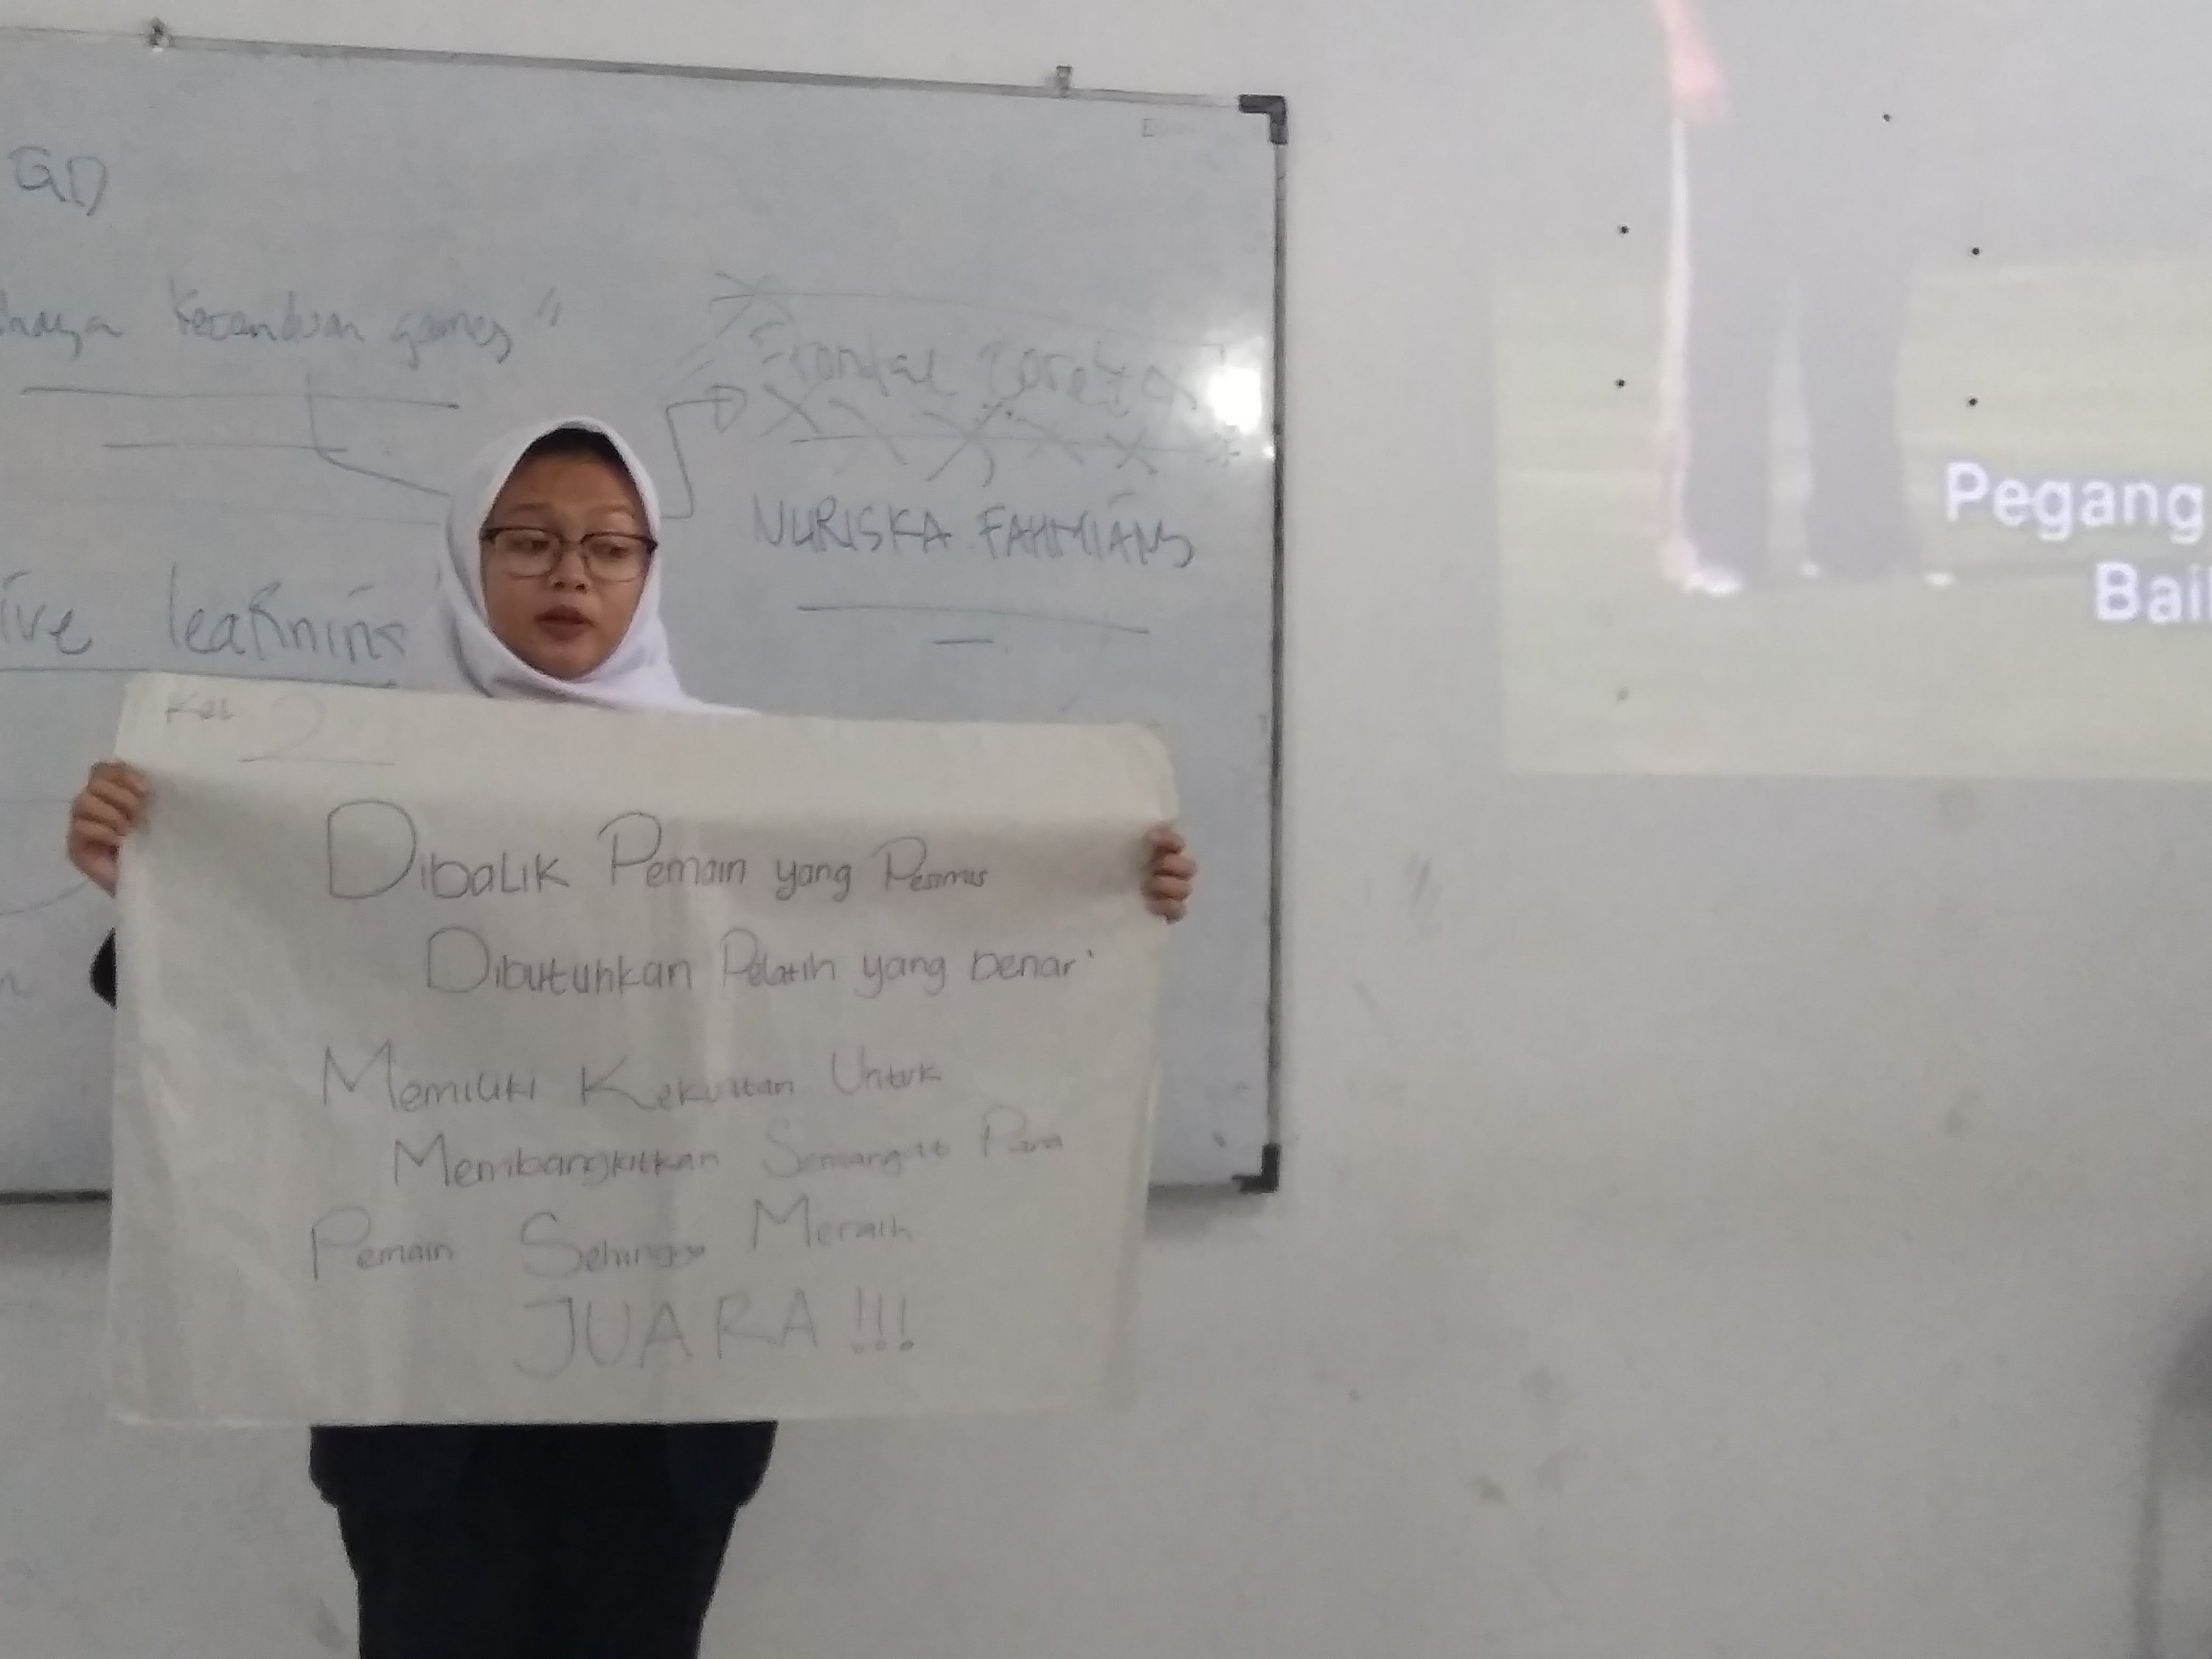 GD
Kecanduan games"
NURISKA FAHMIANS
ive learning
Pegang
Bai
Kel 2
Dibalik Pemain yang Pesimis
Dibutuhkan Pelatih yang benar"
Memiliki Kekuatan Untuk
Membangkitkan Semangat Para
Pemain Sehingga Meraih
JUARA!!!